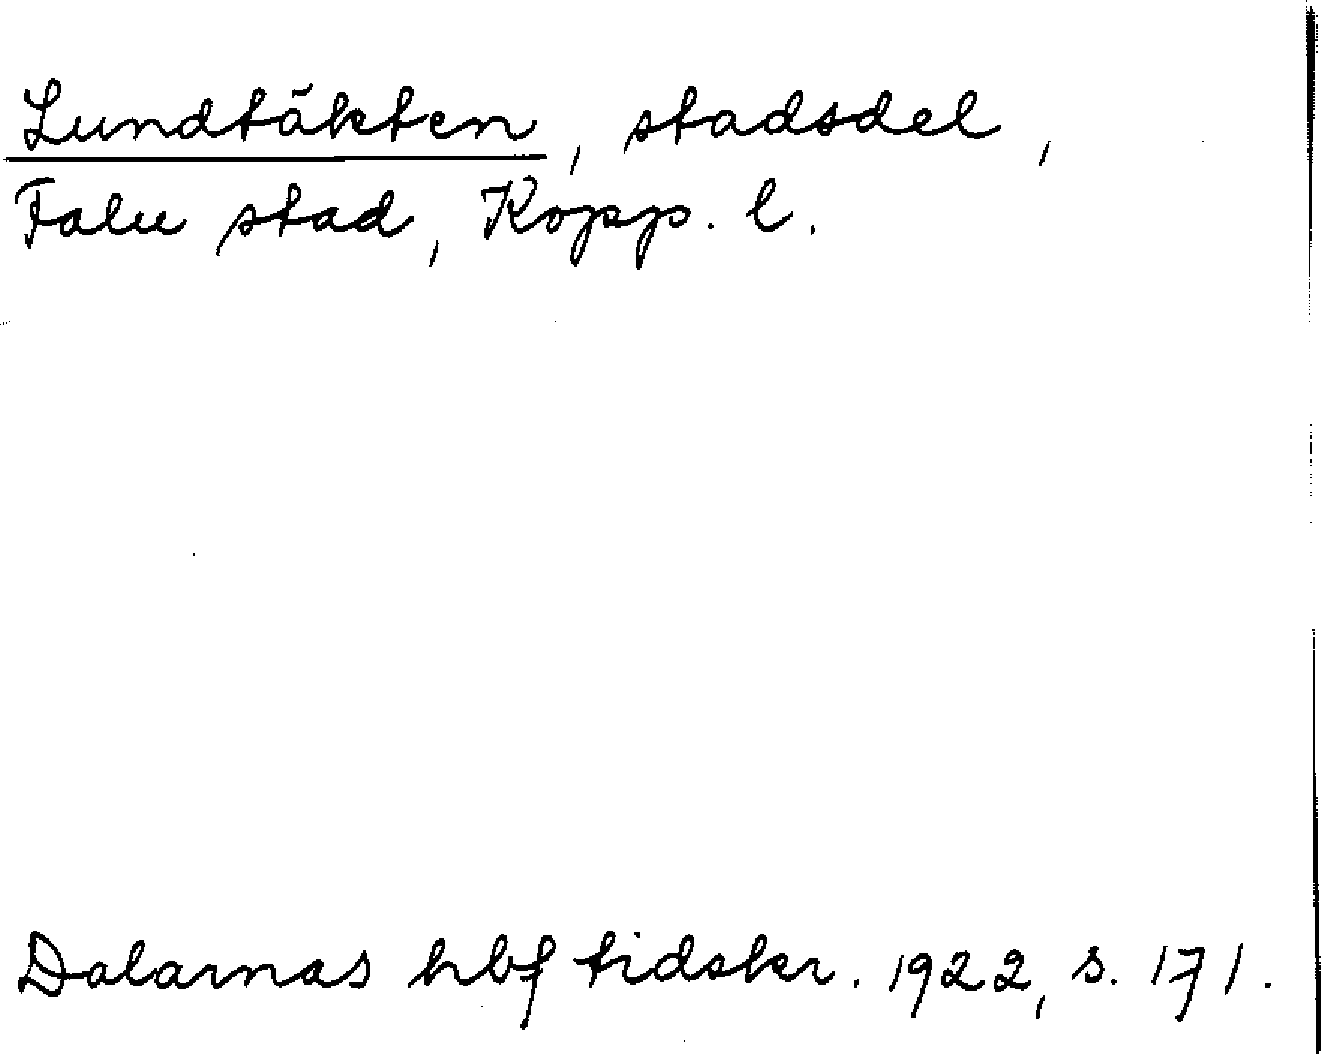 Lundtäkten, stadsdel,
Falu stad, Kopp. l.
Dalarnas hbf tidskr. 1922, s. 171.